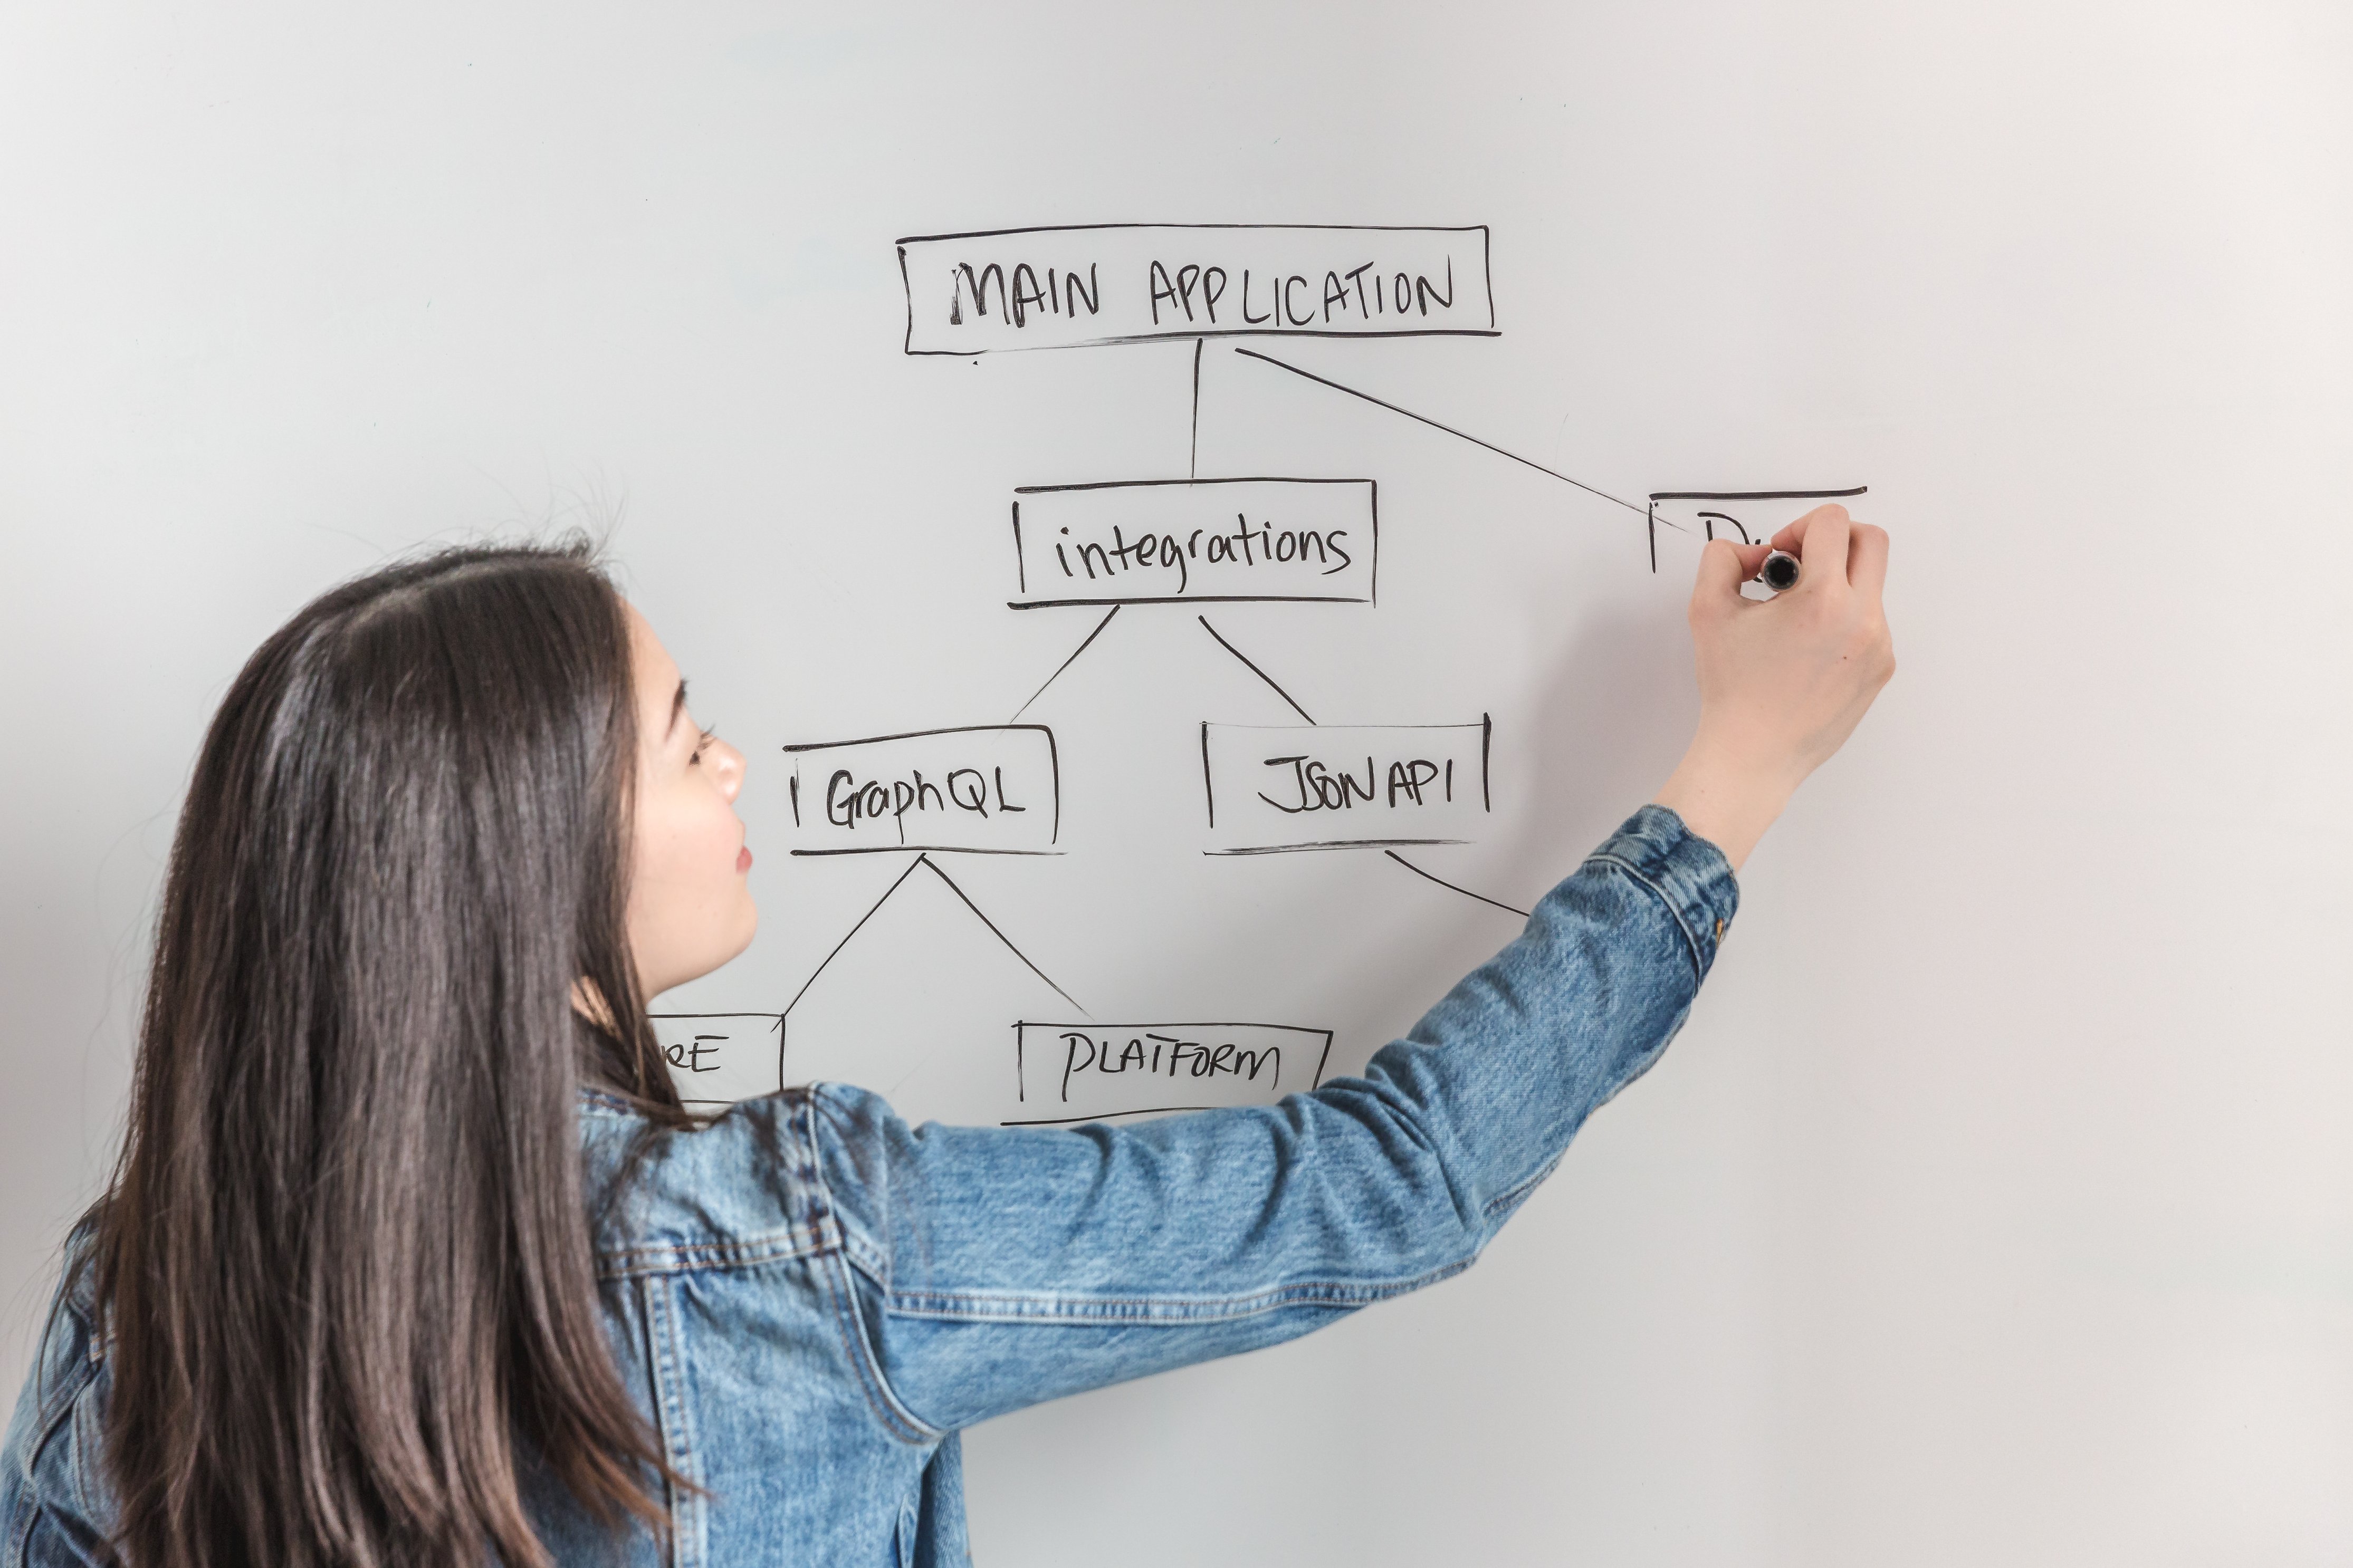 MAIN APPLICATION
integrations
GraphQL
JSON API
PLATFORM